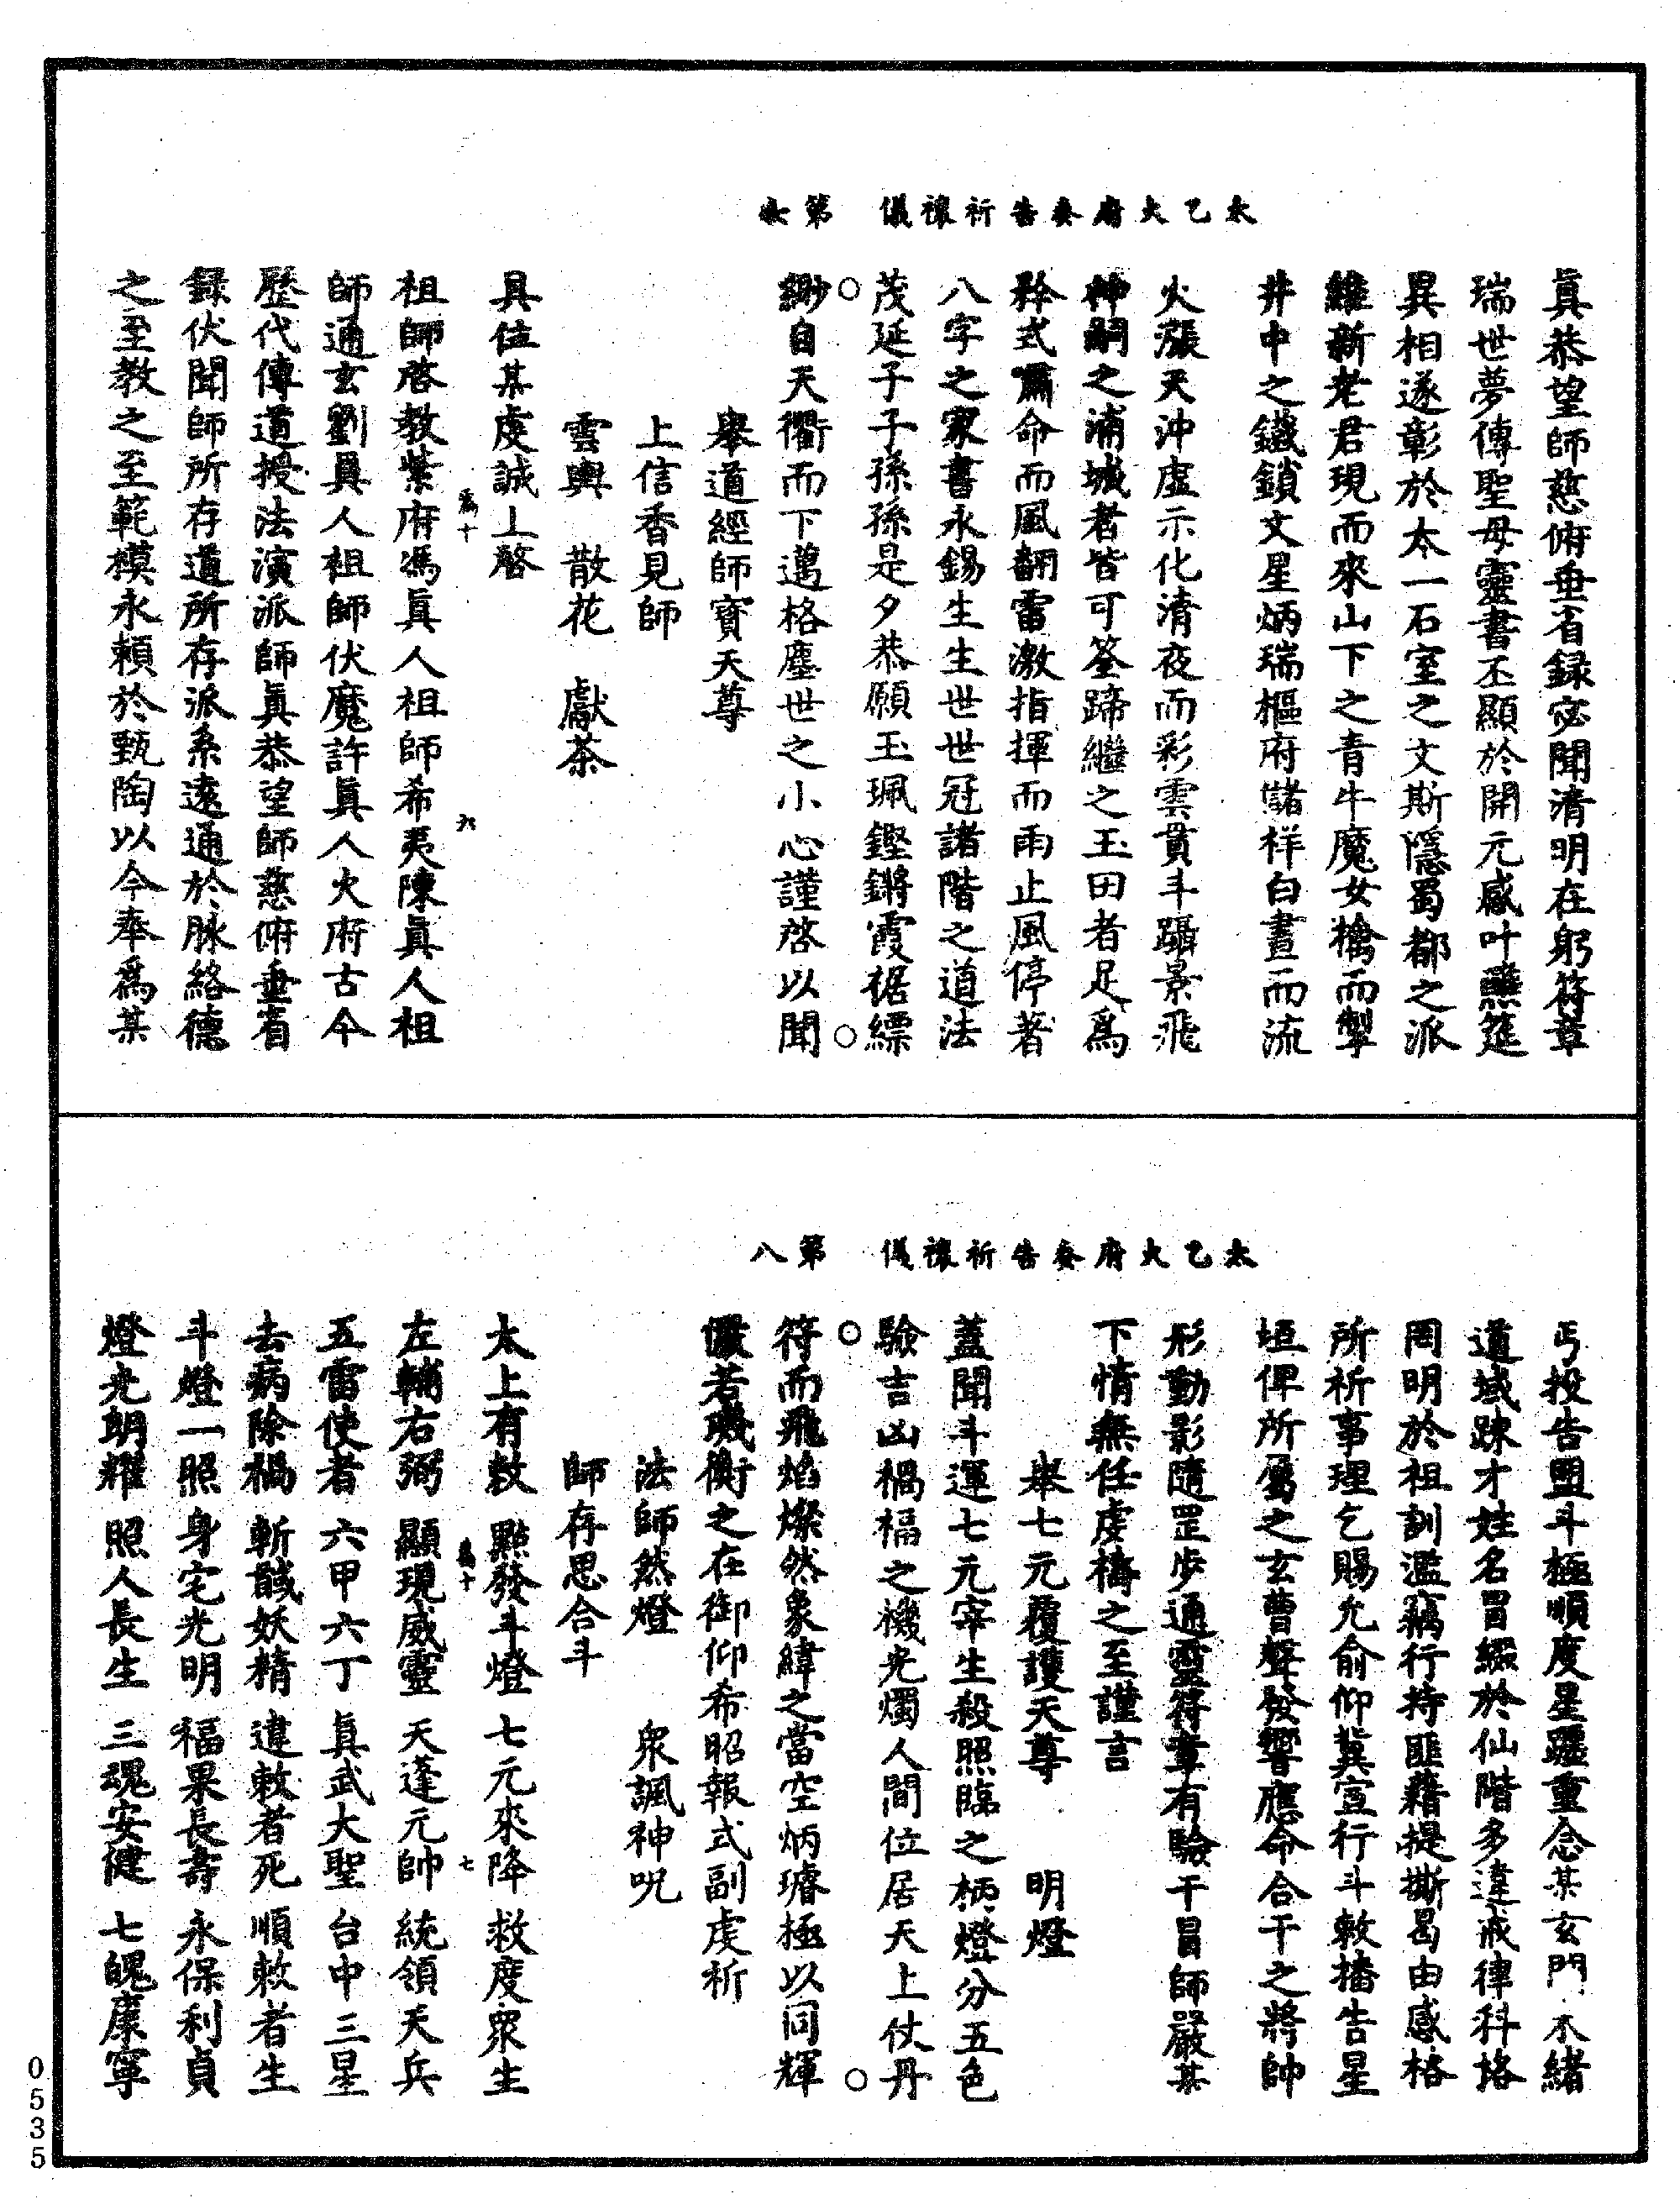 太乙火府奏告祈禳儀　第七
眞恭望師慈俯垂省録宓聞清明在躬符章
瑞世夢傳聖母靈書丕顯於開元感叶醮筵
異相遂彰於太一石室之文斯隱蜀都之派
維新老君現而來山下之青牛魔女擒而掣
井中之鐵鎖文星炳瑞樞府儲祥白晝而流
火漲天沖虛示化清夜而彩雲貫斗躡景飛
神嗣之浦城者皆可筌蹄繼之玉田者足爲
矜式肅命而風翻雷激指揮而雨止風停著
八字之家書永錫生生世世冠諸階之道法
茂延子子孫孫是夕恭願玉珮鏗鏘霞裾縹
緲自天衢而下邁格塵世之小心謹啓以聞
舉道經師寶天尊
上信香見師
雲輿　散花　獻茶
具位某虔誠上啓
祖師啓教紫府馮眞人祖師希夷陳眞人祖
師通玄劉眞人祖師伏魔許眞人火府古今
歷代傳道授法演派師眞恭望師慈俯垂省
録伏聞師所存道所存派系遠通於脉絡德
之至教之至範模永賴於甄陶以今奉爲某
太乙火府奏告祈禳儀　第八
丐投告盟斗極順度星躔重念某玄門不緒
道域踈才姓名冒綴於仙階多違戒律科格
罔明於祖訓濫竊行持匪藉提撕曷由感格
所祈事理乞賜允俞仰冀宣行斗敕播告星
垣俾所屬之玄曹聲發響應命合干之將帥
形動影隨罡步通靈符章有驗干冒師嚴某
下情無任虔禱之至謹言
舉七元覆護天尊　明燈
蓋聞斗運七元宰生殺照臨之柄燈分五色
驗吉凶禍福之機光燭人間位居天上仗丹
符而飛焰燦然象緯之當空炳璿極以同輝
儼若璣衡之在御仰希昭報式副虔祈
法師然燈　衆諷神呪
師存思合斗
太上有敕　點發斗燈　七元來降　救度衆生
左輔右弼　顯現威靈　天蓬元帥　統領天兵
五雷使者　六甲六丁　眞武大聖　台中三星
去病除禍　斬馘妖精　違敕者死　順敕者生
斗燈一照　身宅光明　福果長壽　永保利貞
燈光朗耀　照人長生　三魂安健　七魄康寧
0535